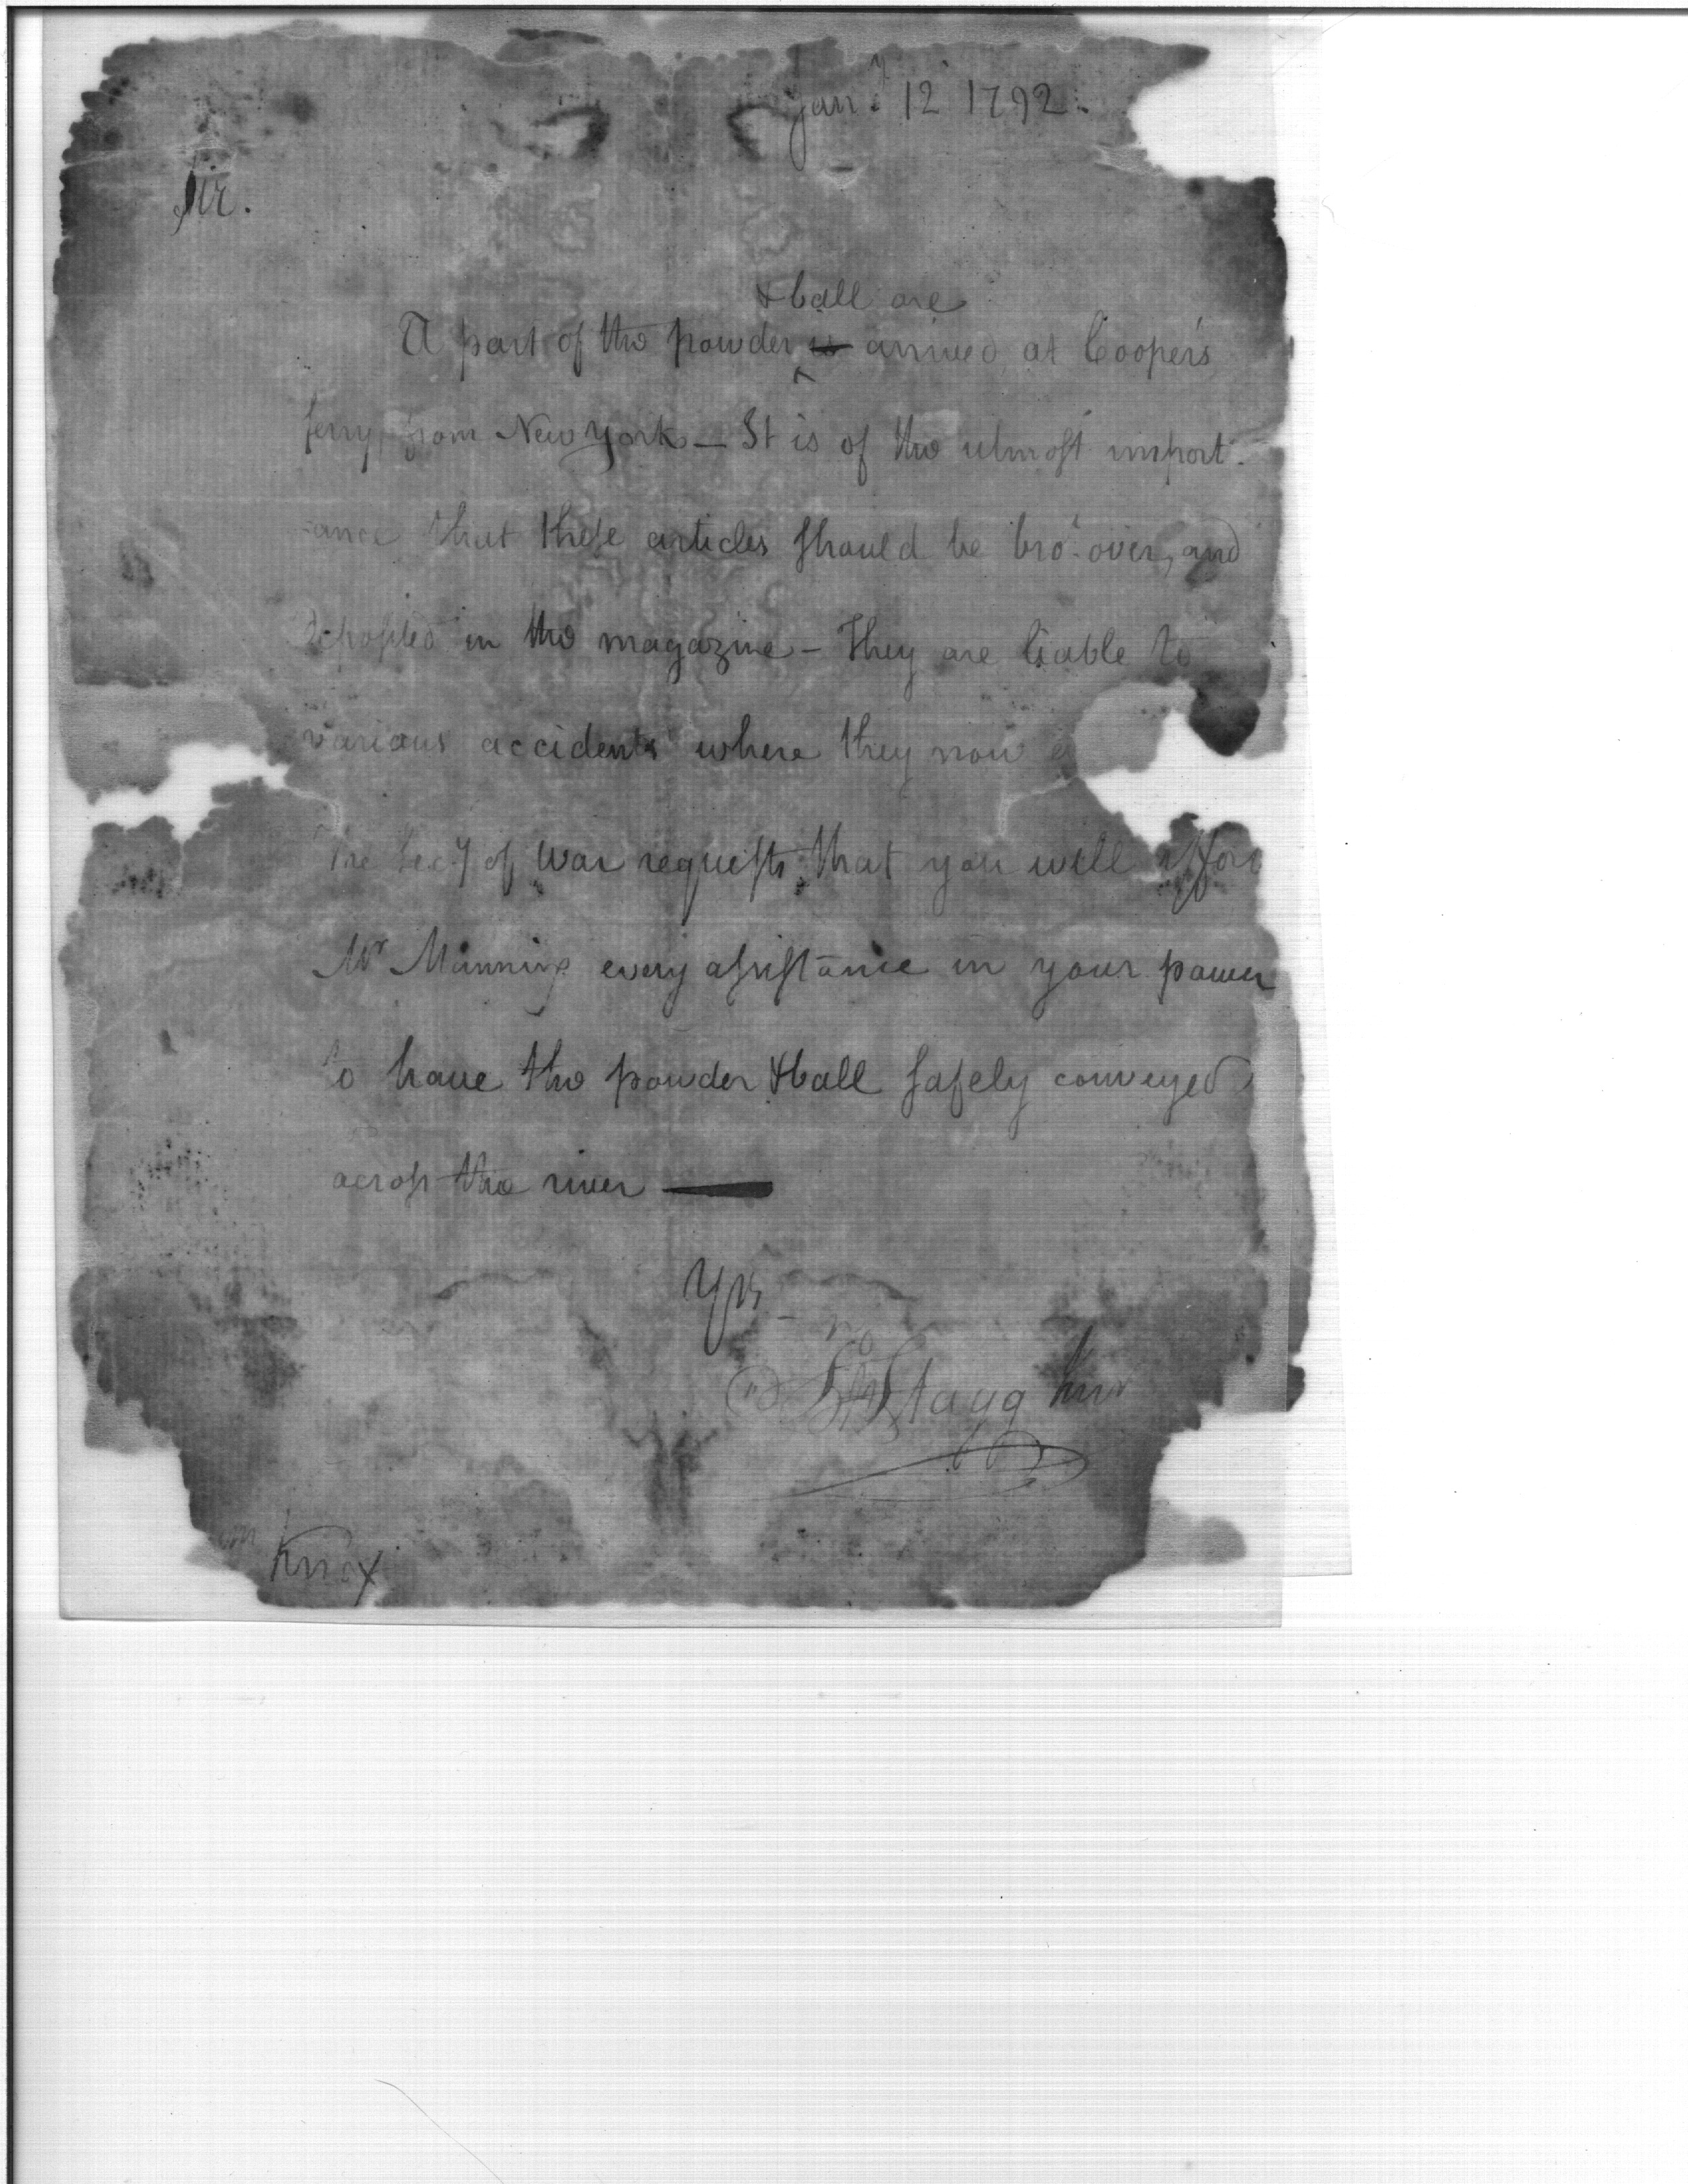 Jany. 12 1792.
Sir.
& ball are
A part of the powder is arrived at Cooper's
ferry, from New York — It is of the utmost import-
-ance that these articles should be bro't over, and
deposited in the magazine — They are liable to
various accidents where they now
The Secy of War requests that you will affor
Mr Manning every assistance in your power
to have the powder & ball safely conveyed
across the river —
Yrs
Jno Stagg Junr
Knox